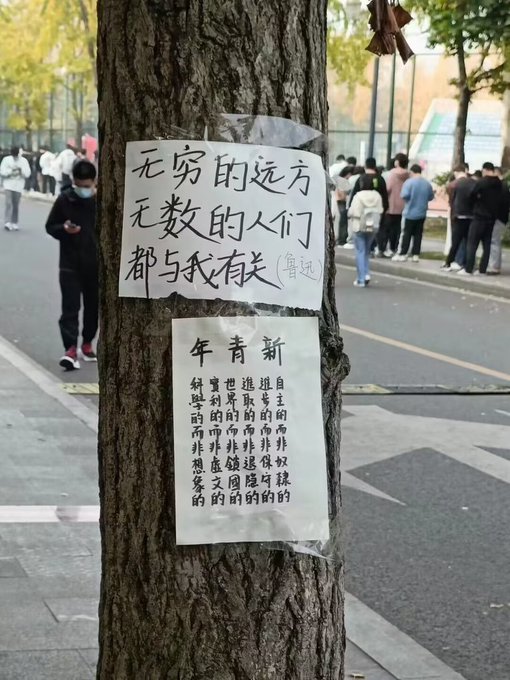 无穷的远方
无数的人们
都与我有关(鲁迅)
新青年
自主的而非奴隸的
進步的而非保守的
進取的而非退隱的
世界的而非鎖國的
實利的而非虛文的
科學的而非想象的